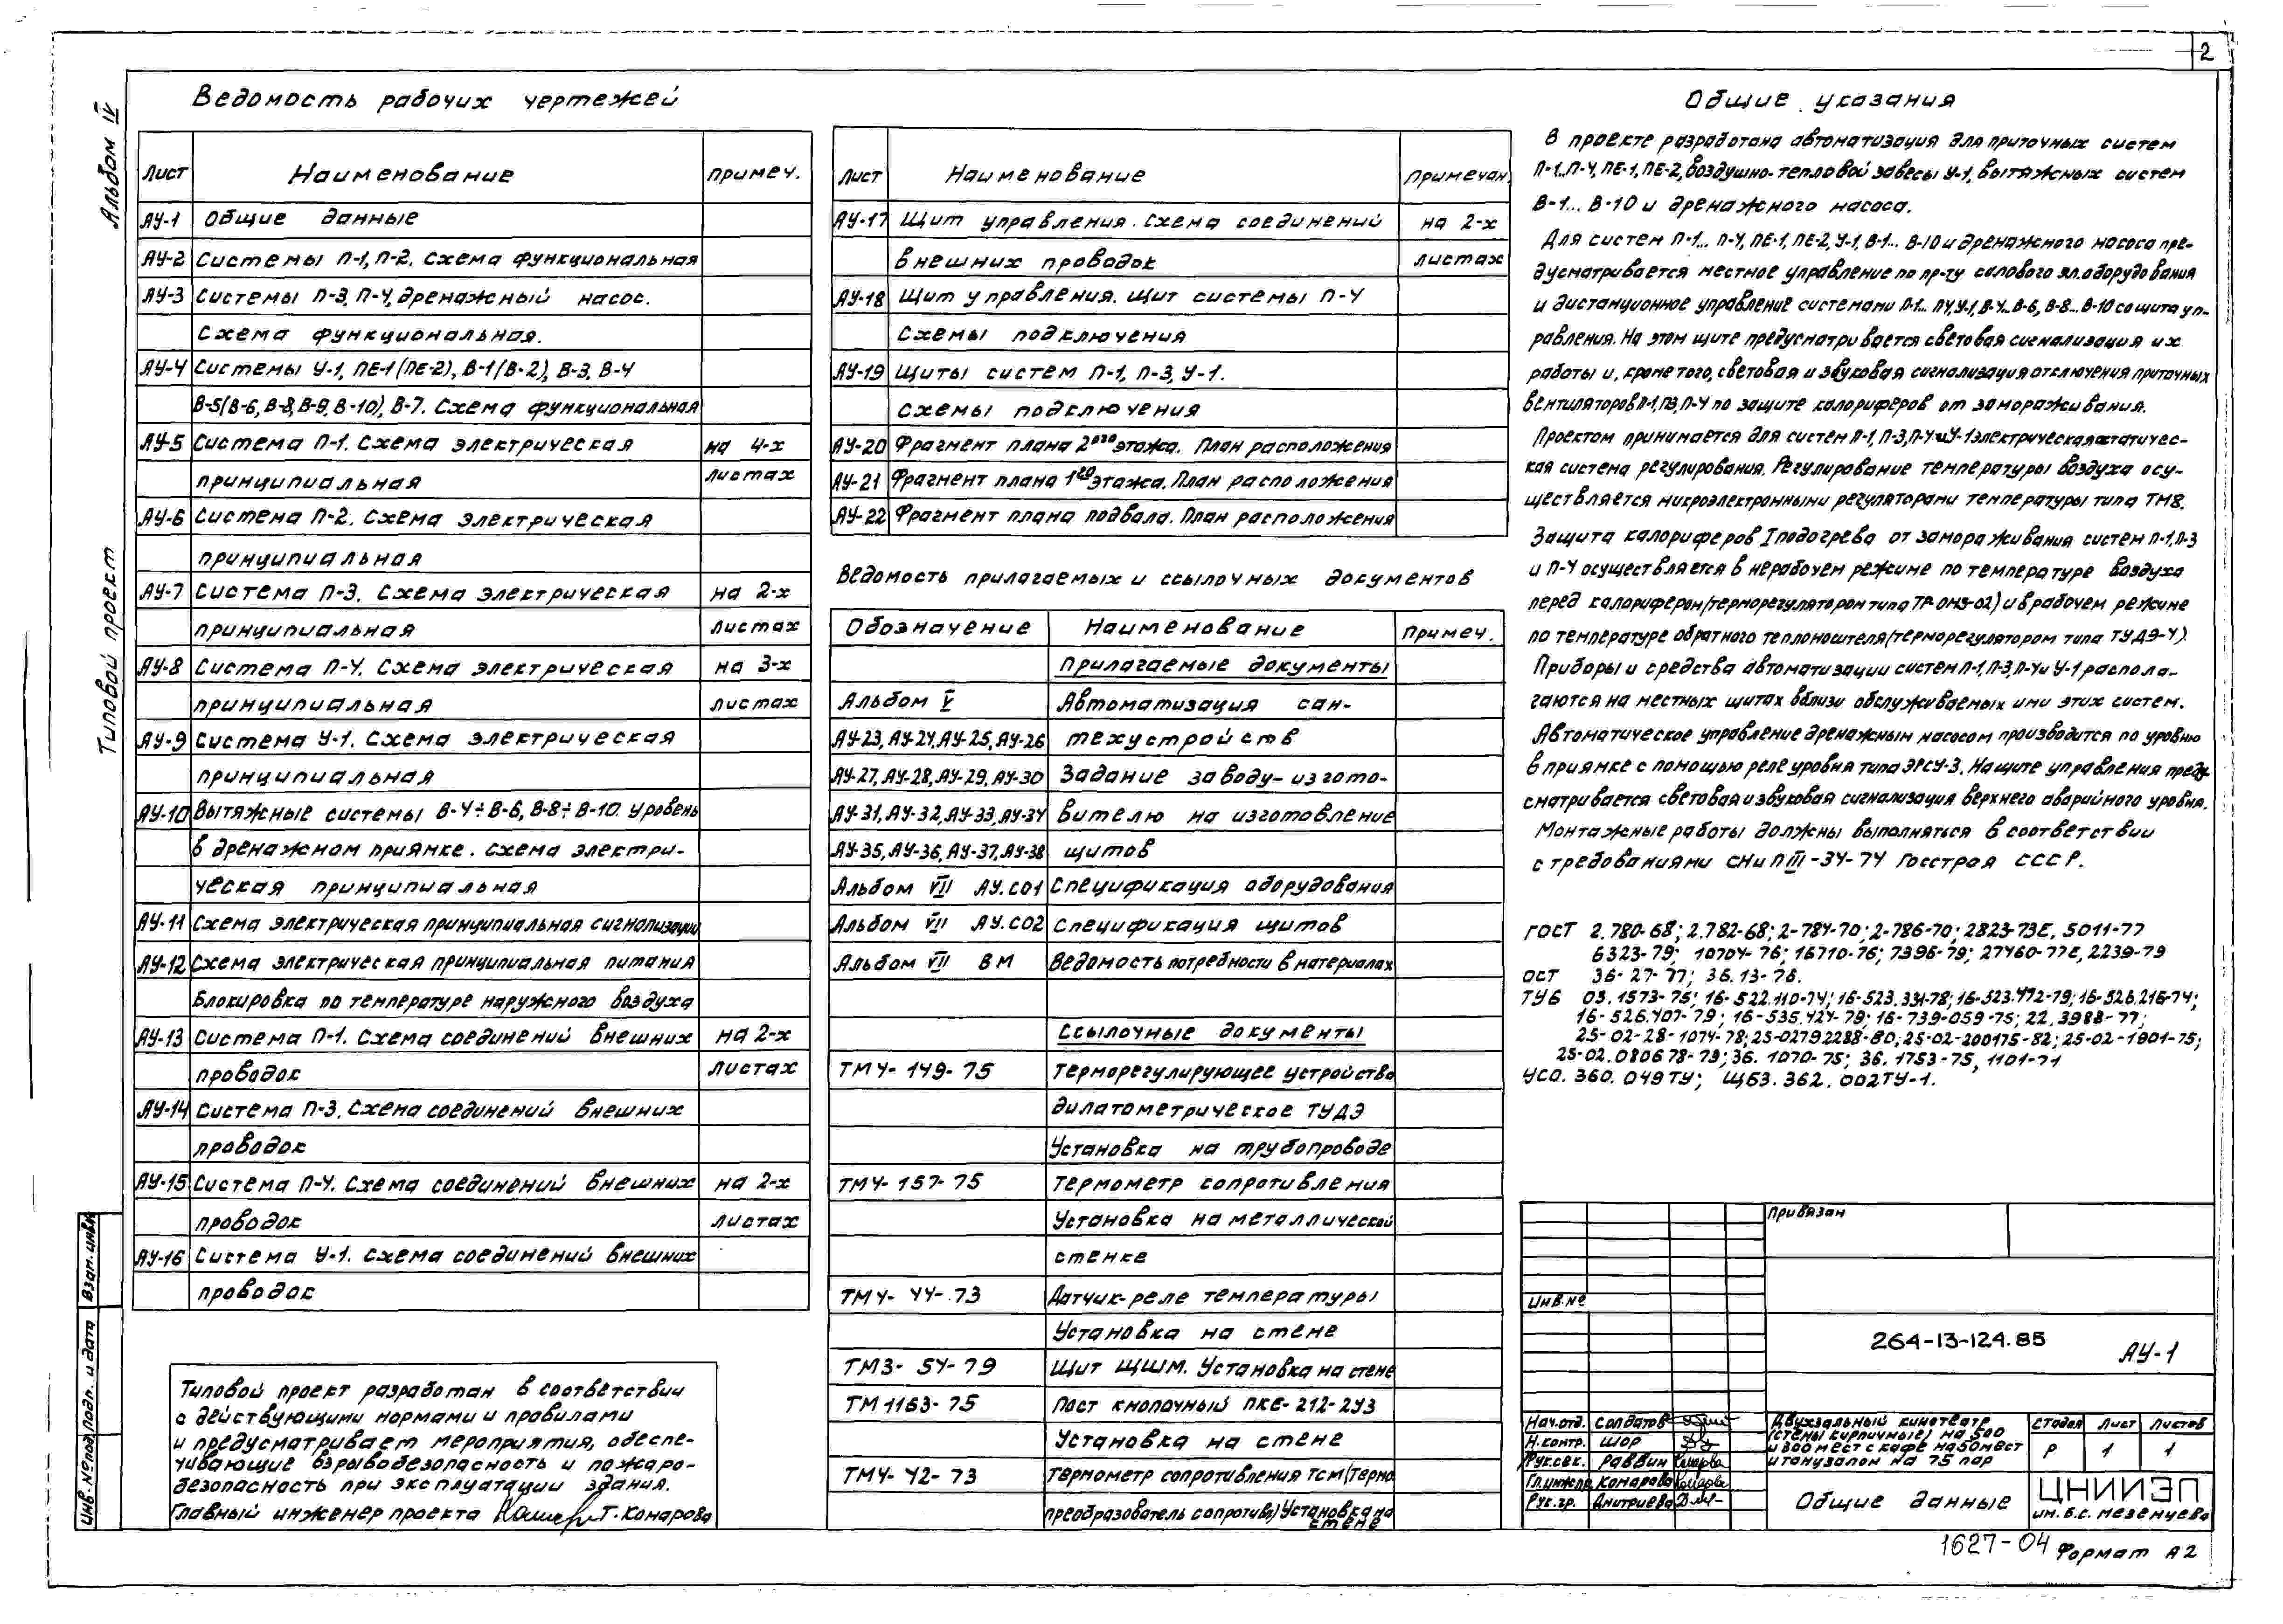 2
Альбом IV
Типовой проект
Взам. инв.№
Подп. и дата
Инв. № под.
Ведомость рабочих чертежей
Лист Наименование примеч.
АУ-1 Общие данные
АУ-2 Системы П-1, П-2. Схема функциональная
АУ-3 Системы П-3, П-4, дренажный насос.
Схема функциональная.
АУ-4 Системы У-1, ПЕ-1 (ПЕ-2), В-1 (В-2), В-3, В-4
В-5(В-6, В-8, В-9, В-10), В-7. Схема функциональная
АУ-5 Система П-1. Схема электрическая на 4-х
принципиальная листах
АУ-6 Система П-2. Схема электрическая
принципиальная
АУ-7 Система П-3. Схема электрическая на 2-х
принципиальная листах
АУ-8 Система П-4. Схема электрическая на 3-х
принципиальная листах
АУ-9 Система У-1. Схема электрическая
принципиальная
АУ-10 Вытяжные системы В-4÷В-6, В-8÷В-10. Уровень
в дренажном приямке. Схема электри-
ческая принципиальная
АУ-11 Схема электрическая принципиальная сигнализации
АУ-12 Схема электрическая принципиальная питания
Блокировка по температуре наружного воздуха
АУ-13 Система П-1. Схема соединений внешних на 2-х
проводок листах
АУ-14 Система П-3. Схема соединений внешних
проводок
АУ-15 Система П-4. Схема соединений внешних на 2-х
проводок листах
АУ-16 Система У-1. Схема соединений внешних
проводок
Типовой проект разработан в соответствии
с действующими нормами и правилами
и предусматривает мероприятия, обеспе-
чивающие взрывобезопасность и пожаро-
безопасность при эксплуатации здания.
Главный инженер проекта Т. Комарова
Лист Наименование Примечан.
АУ-17 Щит управления. Схема соединений на 2-х
внешних проводок листах
АУ-18 Щит управления. Щит системы П-4
Схемы подключения
АУ-19 Щиты систем П-1, П-3, У-1.
Схемы подключения
АУ-20 Фрагмент плана 2ого этажа. План расположения
АУ-21 Фрагмент плана 1го этажа. План расположения
АУ-22 Фрагмент плана подвала. План расположения
Ведомость прилагаемых и ссылочных документов
Обозначение Наименование Примеч.
Прилагаемые документы
Альбом V Автоматизация сан-
АУ-23, АУ-24, АУ-25, АУ-26 техустройств
АУ-27, АУ-28, АУ-29, АУ-30 Задание заводу-изгото-
АУ-31, АУ-32, АУ-33, АУ-34 вителю на изготовление
АУ-35, АУ-36, АУ-37, АУ-38 щитов
Альбом VII АУ.С01 Спецификация оборудования
Альбом VII АУ.С02 Спецификация щитов
Альбом VII ВМ Ведомость потребности в материалах
Ссылочные документы
ТМ4-149-75 Терморегулирующее устройство
дилатометрическое ТУДЭ
Установка на трубопроводе
ТМ4-157-75 Термометр сопротивления
Установка на металлической
стенке
ТМ4-44-73 Датчик-реле температуры
Установка на стене
ТМ3-54-79 Щит ЩШМ. Установка на стене
ТМ1163-75 Пост кнопочный ПКЕ-212-2У3
Установка на стене
ТМ4-42-73 Термометр сопротивления ТСМ(Термо
преобразователь сопротив.) Установка на
стене
Общие указания
В проекте разработана автоматизация для приточных систем
П-1...П-4, ПЕ-1, ПЕ-2, воздушно-тепловой завесы У-1, вытяжных систем
В-1... В-10 и дренажного насоса.
Для систем П-1... П-4, ПЕ-1, ПЕ-2, У-1, В-1... В-10 и дренажного насоса пре-
дусматривается местное управление по пр-ту силового эл.оборудования
и дистанционное управление системами П-1... П4, У-1, В-4...В-6, В-8...В-10 со щита уп-
равления. На этом щите предусматривается световая сигнализация их
работы и, кроме того, световая и звуковая сигнализация отключения приточных
вентиляторов П-1, П3, П-4 по защите калориферов от замораживания.
Проектом принимается для систем П-1, П-3, П-4 и У-1 электрическая статичес-
кая система регулирования. Регулирование температуры воздуха осу-
ществляется микроэлектронными регуляторами температуры типа ТМ8.
Защита калориферов I подогрева от замораживания систем П-1, П-3
и П-4 осуществляется в нерабочем режиме по температуре воздуха
перед калорифером (терморегулятором типа ТР-ОМ5-02) и в рабочем режиме
по температуре обратного теплоносителя (терморегулятором типа ТУДЭ-4).
Приборы и средства автоматизации систем П-1, П-3, П-4 и У-1 распола-
гаются на местных щитах вблизи обслуживаемых ими этих систем.
Автоматическое управление дренажным насосом производится по уровню
в приямке с помощью реле уровня типа ЭРСУ-3. На щите управления преду-
сматривается световая и звуковая сигнализация верхнего аварийного уровня.
Монтажные работы должны выполняться в соответствии
с требованиями СНиП III-34-74 Госстроя СССР.
ГОСТ 2.780-68; 2.782-68; 2-784-70; 2-786-70; 2823-73Е, 5011-77
6323-79; 10704-76; 16710-76; 7396-79; 27460-77Е, 2239-79
ОСТ 36-27-77; 36.13-76.
ТУ6 03.1573-75; 16-522.110-74; 16-523.331-78; 16-523.472-79; 16-526.216-74;
16-526.407-79; 16-535.424-79; 16-739-059-75; 22.3988-77;
25-02-28-1074-78; 25-02792288-80; 25-02-200175-82; 25-02-1901-75;
25-02.080678-73; 36.1070-75; 36.1753-75, 1101-71
УС0.360.049ТУ; ЩБ3.362.002ТУ-1.
Привязан
Инв.№
264-13-124.85
АУ-1
Нач.отд. Солдатов
Н.контр. Шор
Рук.сек. Раввин
Гл.инж.пр. Комарова
Рук.гр. Дмитриева
Двухзальный кинотеатр
(стены кирпичные) на 500
и 300 мест с кафе на 50 мест
и танцзалом на 75 пар
Стадия Лист Листов
Р 1 1
Общие данные
ЦНИИЭП
им. Б.С. Мезенцева
1627-04 Формат А2